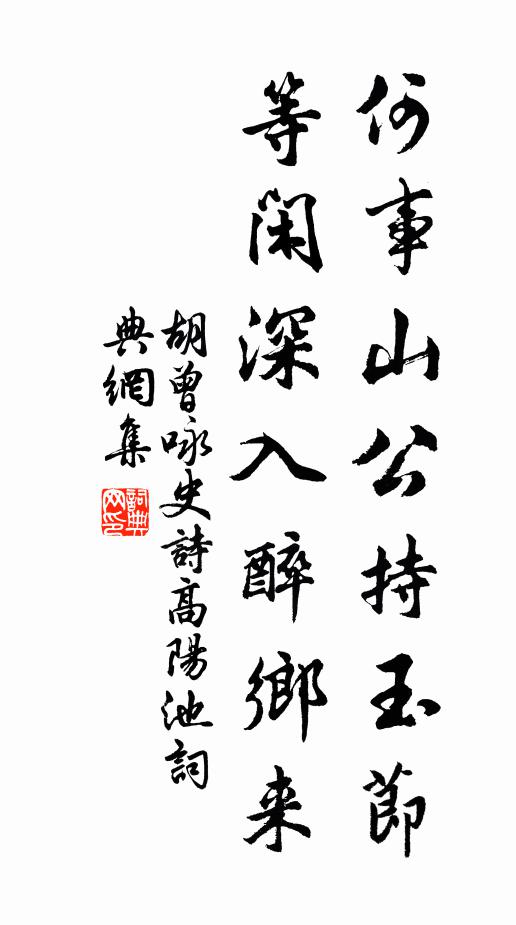 何事山公持玉節
等閑深入醉鄉来
胡曾咏史詩高陽池詞
典網集
詞典网印